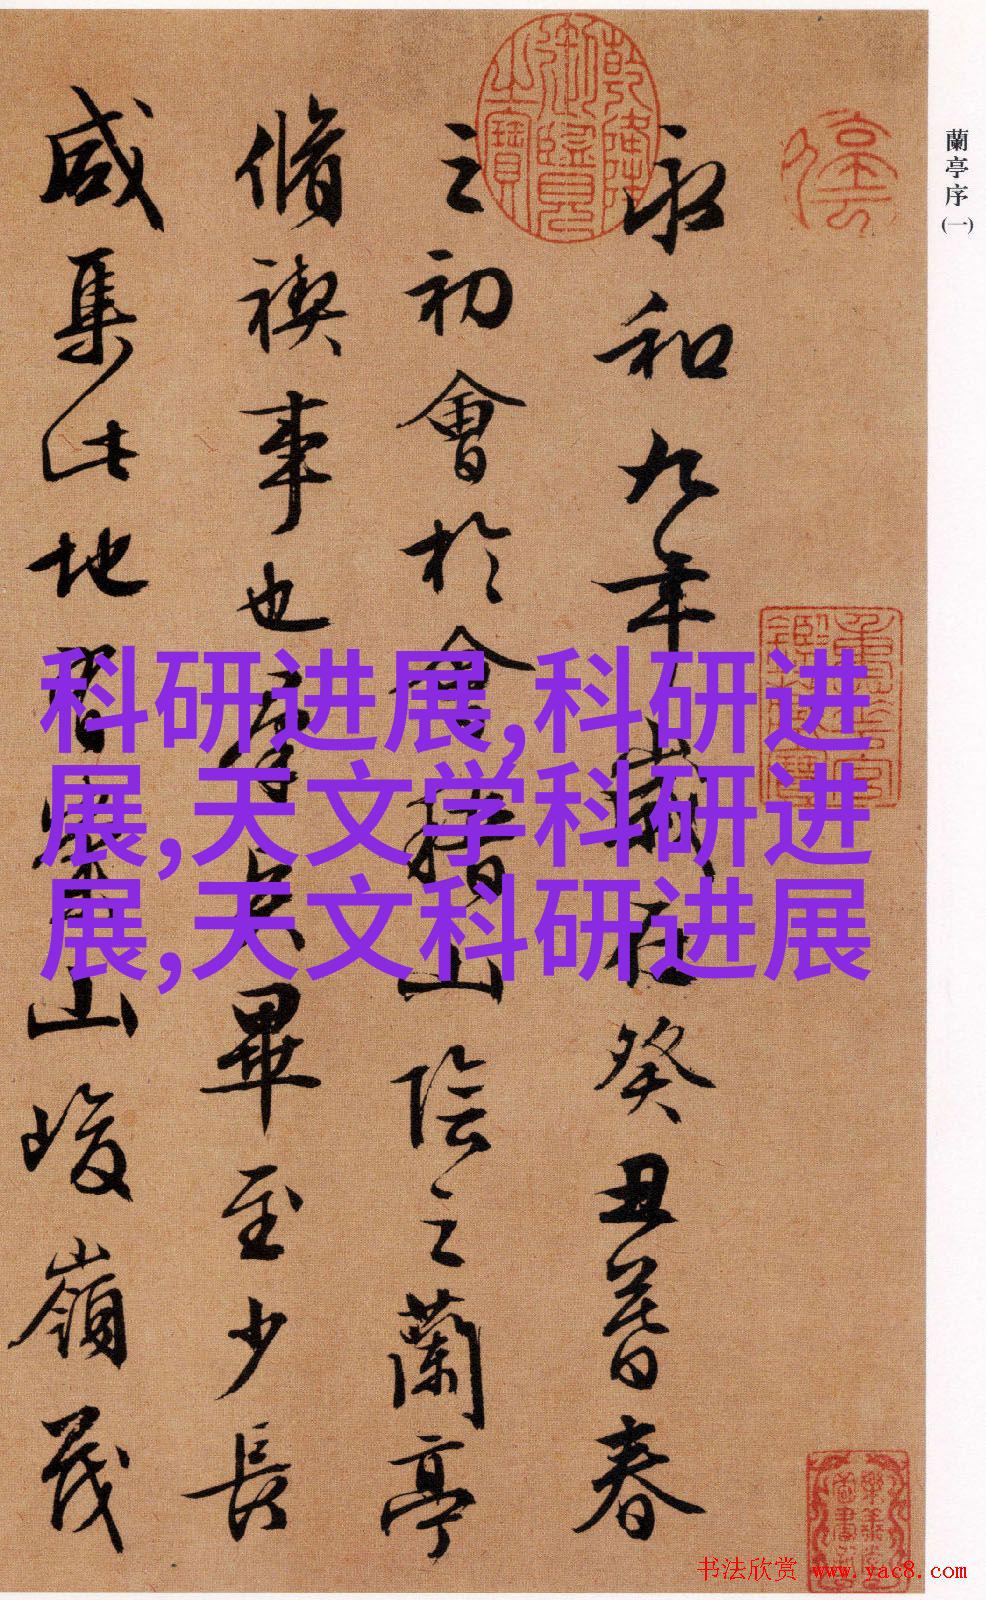 蘭亭序
(一)
永和九年歲在癸丑暮春
之初會於會稽山陰之蘭亭
脩禊事也羣賢畢至少長
咸集此地有崇山峻嶺茂
乾隆御覽之寶
科研进展,科研进
展,天文学科研进
展,天文科研进展
书法欣赏 www.yac8.com